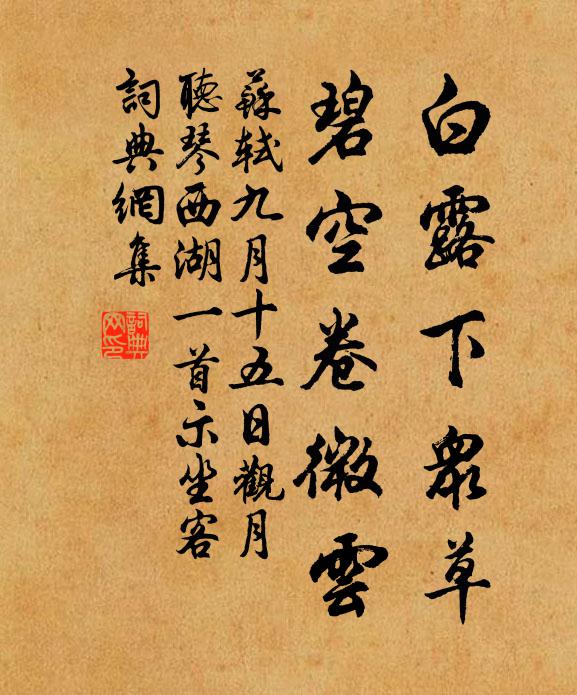 白露下衆草
碧空卷微雲
蘇軾九月十五日觀月
聽琴西湖一首示坐客
詞典網集
詞典
网印